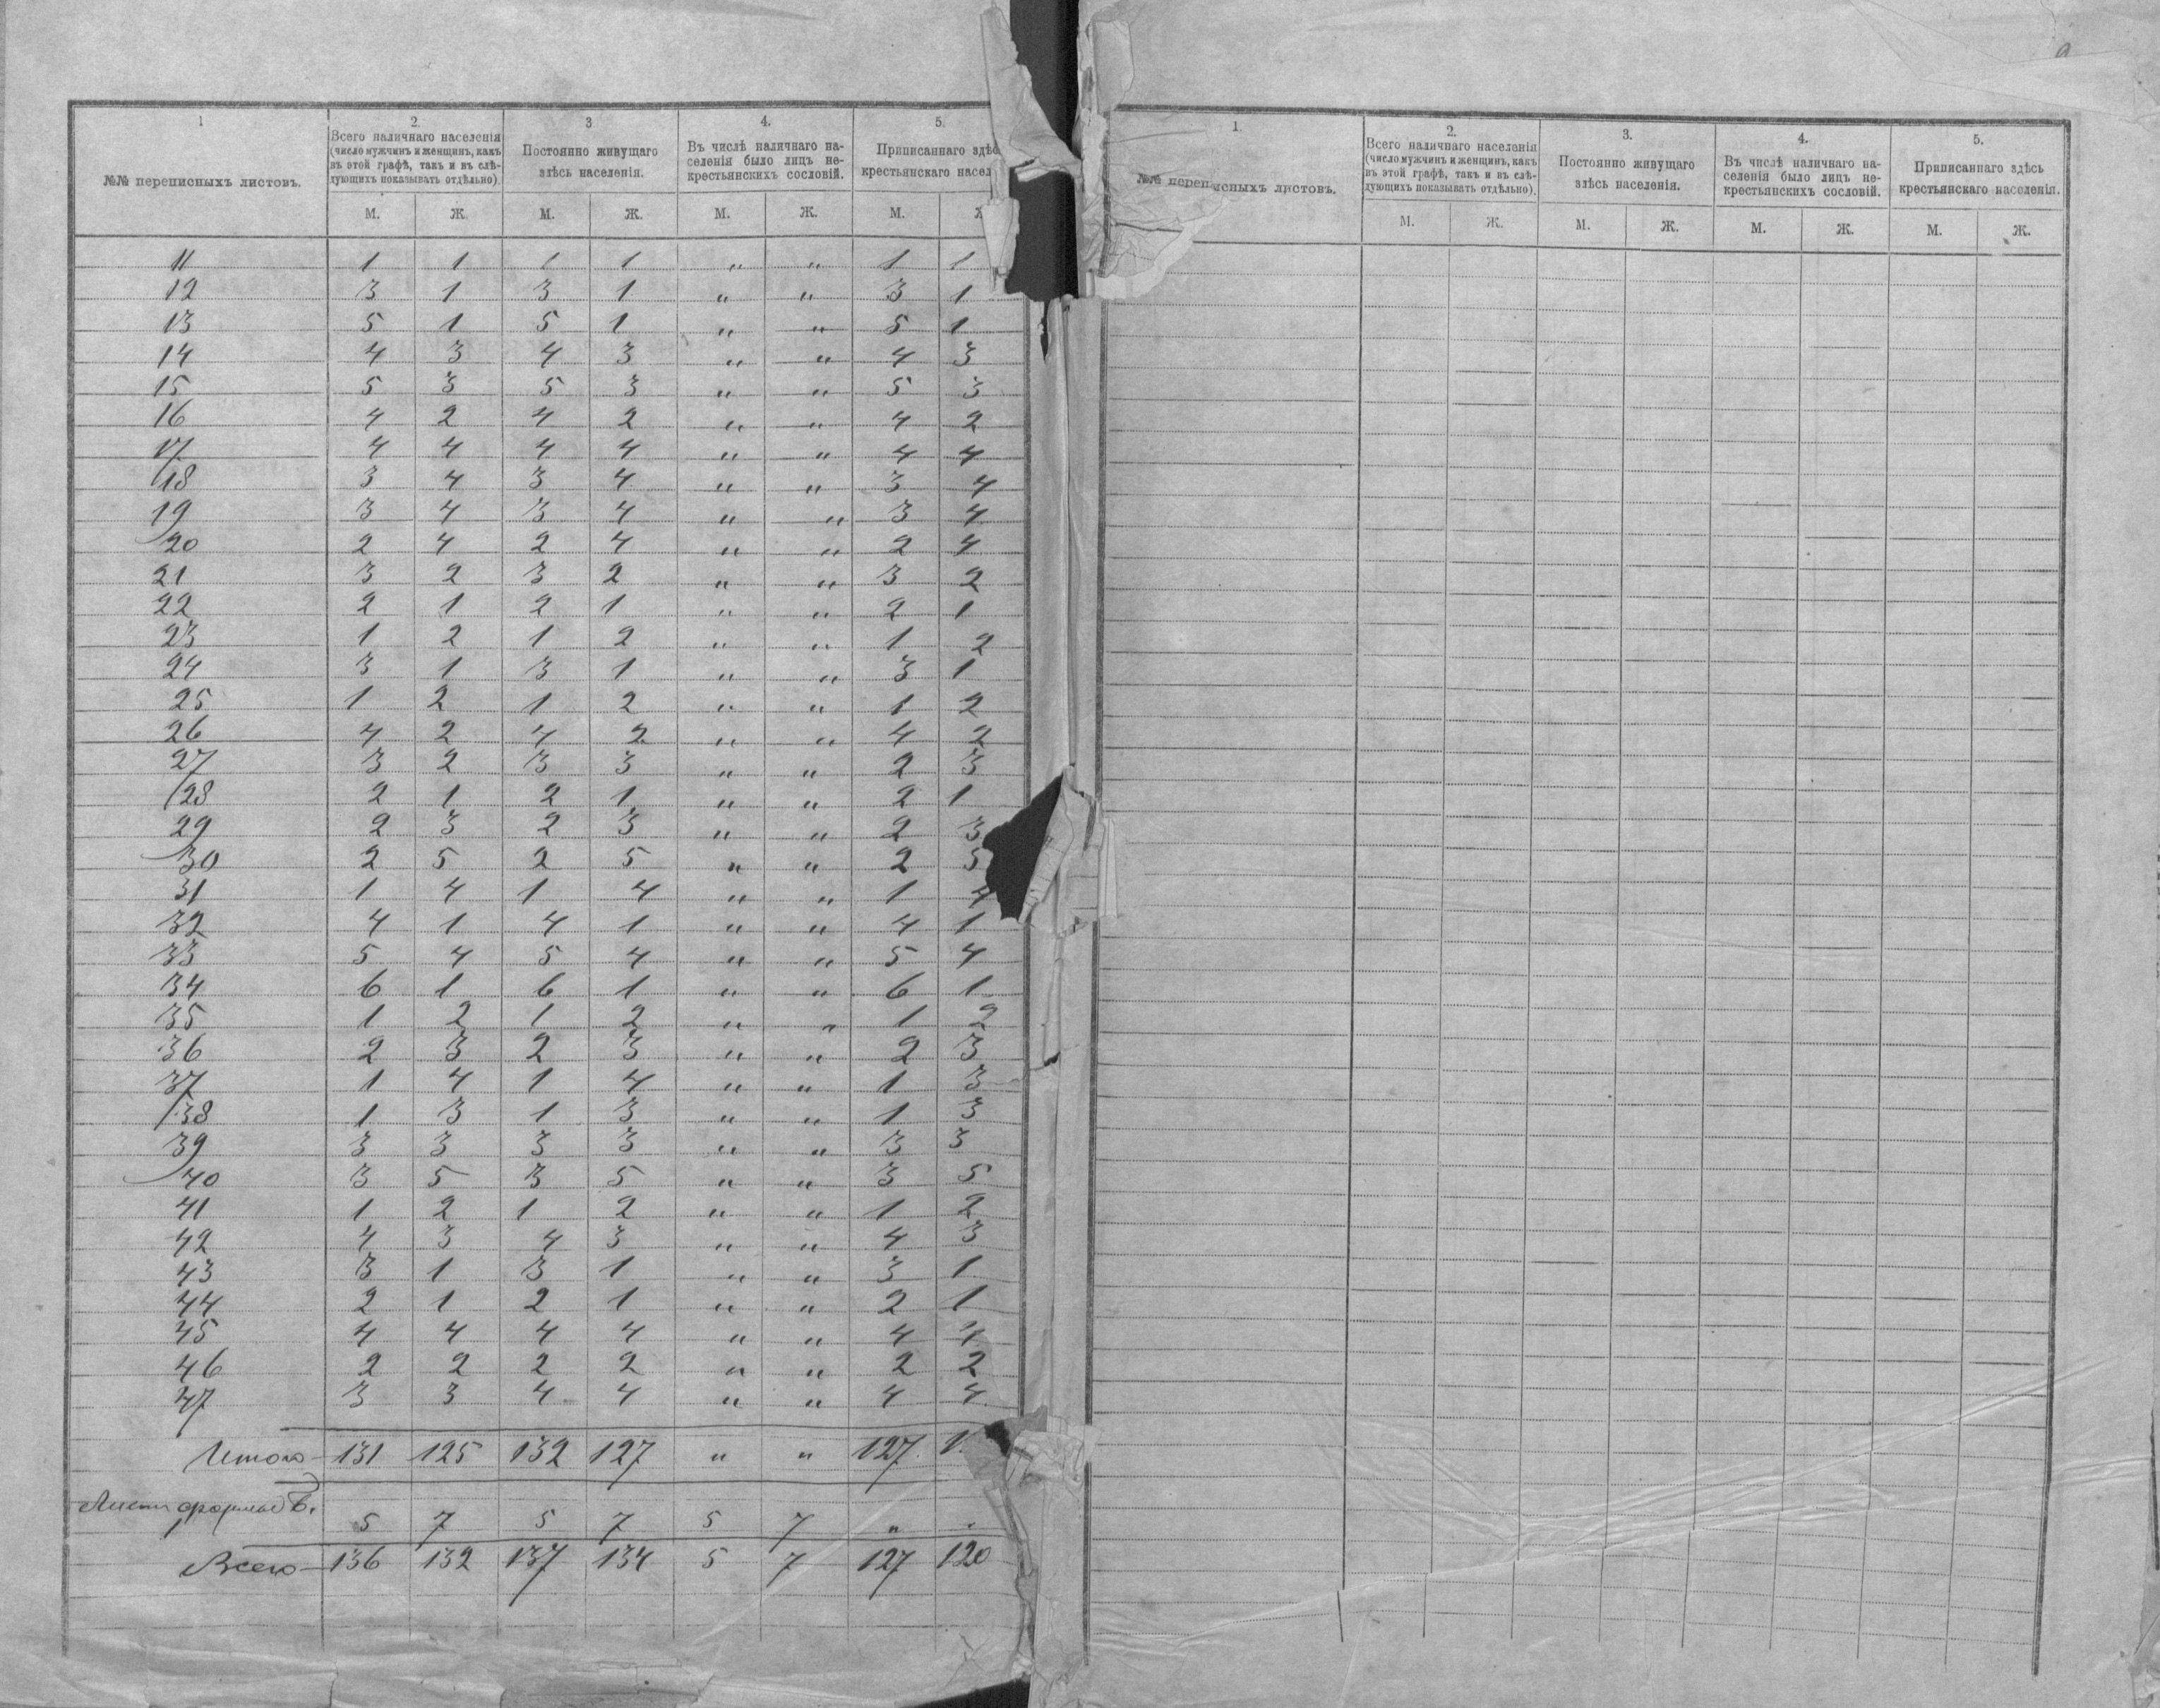 9
1 2. 3 4. 5.
№№ переписныхъ листовъ. Всего наличнаго населенія (число мужчинъ и женщинъ, какъ въ этой графѣ, такъ и въ слѣдующихъ показывать отдѣльно). Постоянно живущаго здѣсь населенія. Въ числѣ наличнаго населенія было лицъ некрестьянскихъ сословій. Приписаннаго здѣс крестьянскаго насел
М. Ж. М. Ж. М. Ж. М.
11 1 1 1 1 " " 1 1
12 3 1 3 1 " " 3 1
13 5 1 5 1 " " 5 1
14 4 3 4 3 " " 4 3
15 5 3 5 3 " " 5 3
16 4 2 4 2 " " 4 2
17 4 4 4 4 " " 4 4
18 3 4 3 4 " " 3 4
19 3 4 3 4 " " 3 4
20 2 4 2 4 " " 2 4
21 3 2 3 2 " " 3 2
22 2 1 2 1 " " 2 1
23 1 2 1 2 " " 1 2
24 3 1 3 1 " " 3 1
25 1 2 1 2 " " 1 2
26 4 2 4 2 " " 4 2
27 3 2 3 3 " " 2 3
28 2 1 2 1 " " 2 1
29 2 3 2 3 " " 2 3
30 2 5 2 5 " " 2 5
31 1 4 1 4 " " 1 4
32 4 1 4 1 " " 4 1
33 5 4 5 4 " " 5 4
34 6 1 6 1 " " 6 1
35 1 2 1 2 " " 1 2
36 2 3 2 3 " " 2 3
37 1 4 1 4 " " 1 3
38 1 3 1 3 " " 1 3
39 3 3 3 3 " " 3 3
40 3 5 3 5 " " 3 5
41 1 2 1 2 " " 1 2
42 4 3 4 3 " " 4 3
43 3 1 3 1 " " 3 1
44 2 1 2 1 " " 2 1
45 4 4 4 4 " " 4 4
46 2 2 2 2 " " 2 2
47 3 3 4 4 " " 4 4
Итого 131 125 132 127 " " 127
Листы формы Б. 5 7 5 7 5 7 "
Всего 136 132 137 134 5 7 127 120
1. 2. 3. 4. 5.
№№ переписныхъ листовъ. Всего наличнаго населенія (число мужчинъ и женщинъ, какъ въ этой графѣ, такъ и въ слѣдующихъ показывать отдѣльно). Постоянно живущаго здѣсь населенія. Въ числѣ наличнаго населенія было лицъ некрестьянскихъ сословій. Приписаннаго здѣсь крестьянскаго населенія.
М. Ж. М. Ж. М. Ж. М. Ж.